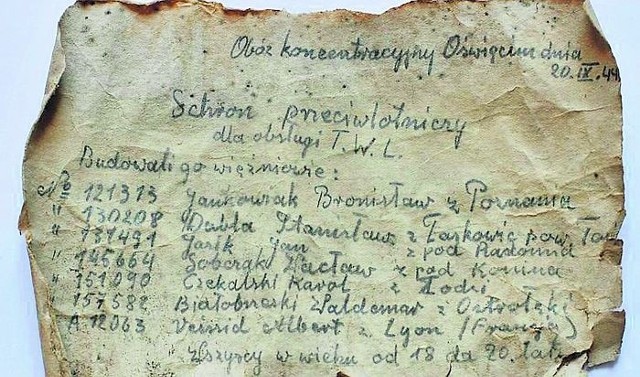 Obóz koncentracyjny Oświęcim dnia
20.IX.44
Schron przeciwlotniczy
dla obsługi T.W.L.
Budowali go więźniowie:
No 121313 Jankowiak Bronisław z Poznania
" 130208 Dubla Stanisław z Łaskowic pow. Tar
" 131491 Jasik Jan z pod Radomia
" 145664 Sobczak Wacław z pod Konina
" 151090 Czekalski Karol z Łodzi
" 157582 Białobrzeski Waldemar z Ostrołęki
A 12063 Veissid Albert z Lyon (Francja)
Wszyscy w wieku od 18 do 20. lat